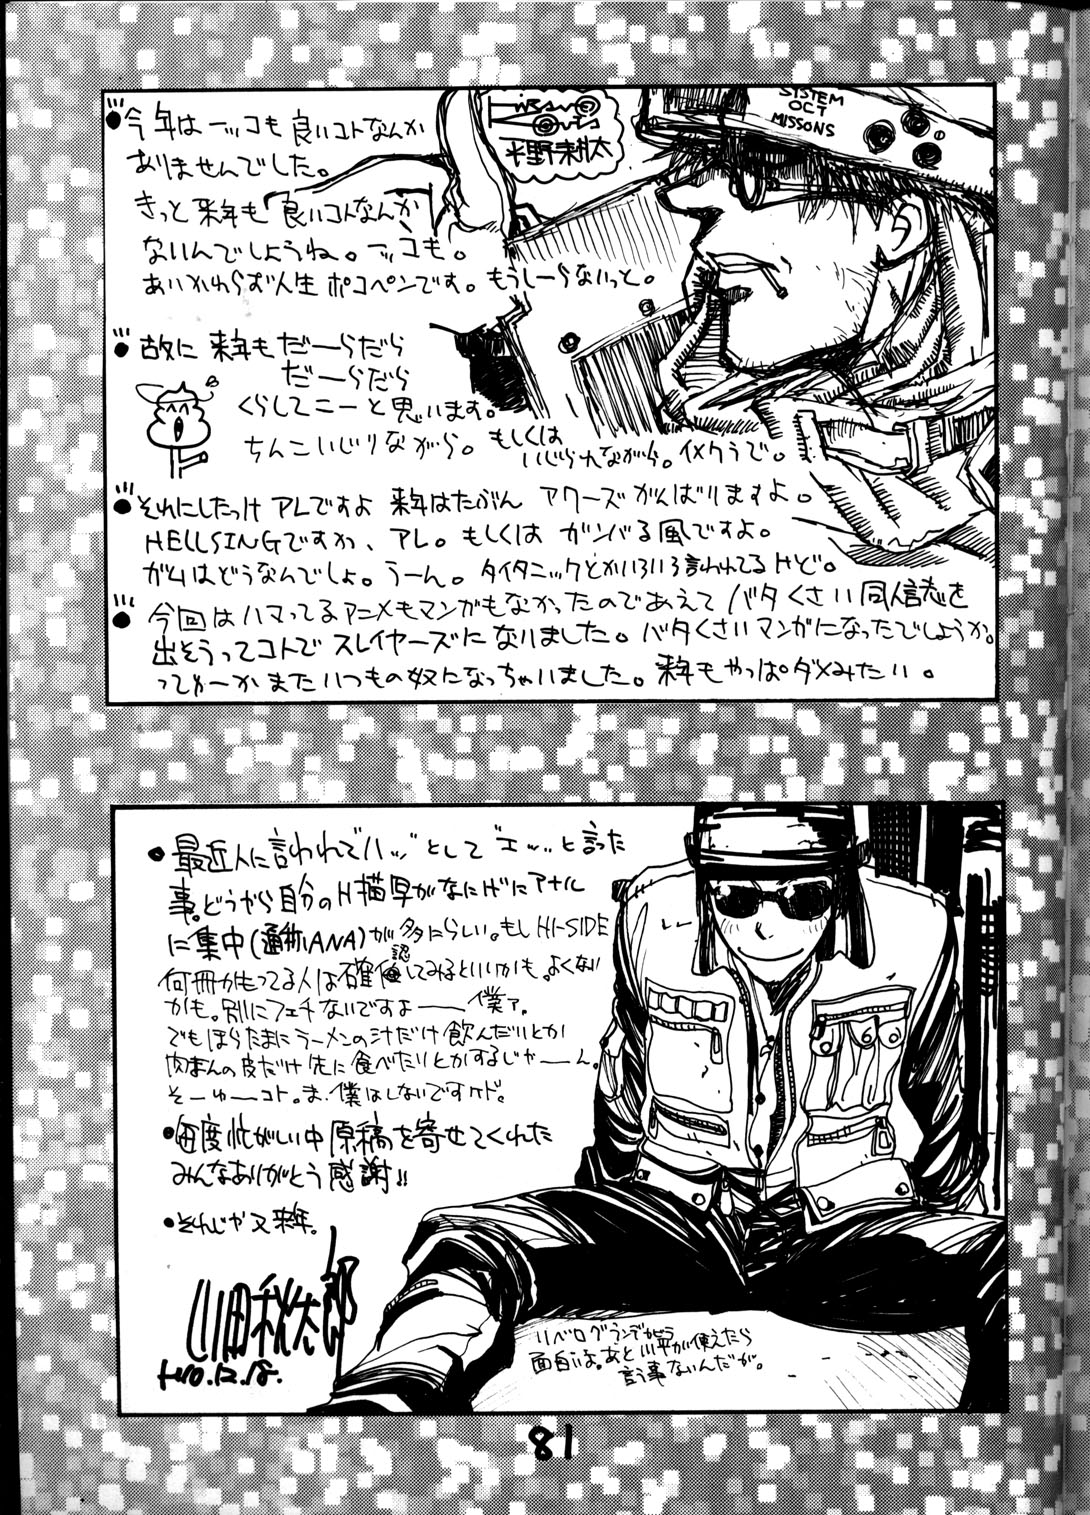 SYSTEM
OCT
MISSONS
平野耕太
今年は一ッコも良いコトなんか
ありませんでした。
きっと来年も「良いコトなんか」
ないんでしょうね。一ッコも。
あいかわらず人生ポコペンです。もうしーらないっと。
故に来年もだーらだら
だーらだら
くらしてこーと思います。
ちんこいじりながら。もしくは
いじられながら。イメクラで。
それにしたっけアレですよ来年はたぶんアワーズがんばりますよ。
HELLSINGですか、アレ。もしくはガンバる風ですよ。
ガムはどうなんでしょ。うーん。タイタニックとかいろいろ言われてるけど。
今回はハマってるアニメもマンガもなかったのであえてバタくさい同人誌を
出そうってコトでスレイヤーズになりました。バタくさいマンガになったでしょうか。
ってゆーかまたいつもの奴になっちゃいました。来年もやっぱダメみたい。
最近人に言われてハッとしてエッと言った
事。どうやら自分のH描写がなにげにアナル
に集中(通称ANA)が多いらしい。もしHI-SIDE
何冊かもってる人は確認してみるといいかも。よくない
かも。別にフェチないですよ――僕ァ。
でもほらたまにラーメンの汁だけ飲んだいとか
肉まんの皮だけ先に食べたいとかするじゃーん。
そーゆーコト。ま、僕はしないですケド。
毎度忙がしい中原稿を寄せてくれた
みんなありがとう感謝!!
そんじゃ又来年。
山田秋太郎
H10.12.18.
リベログランデが
面白いよ。あと川平が使えたら
言う事ないんだが。
81